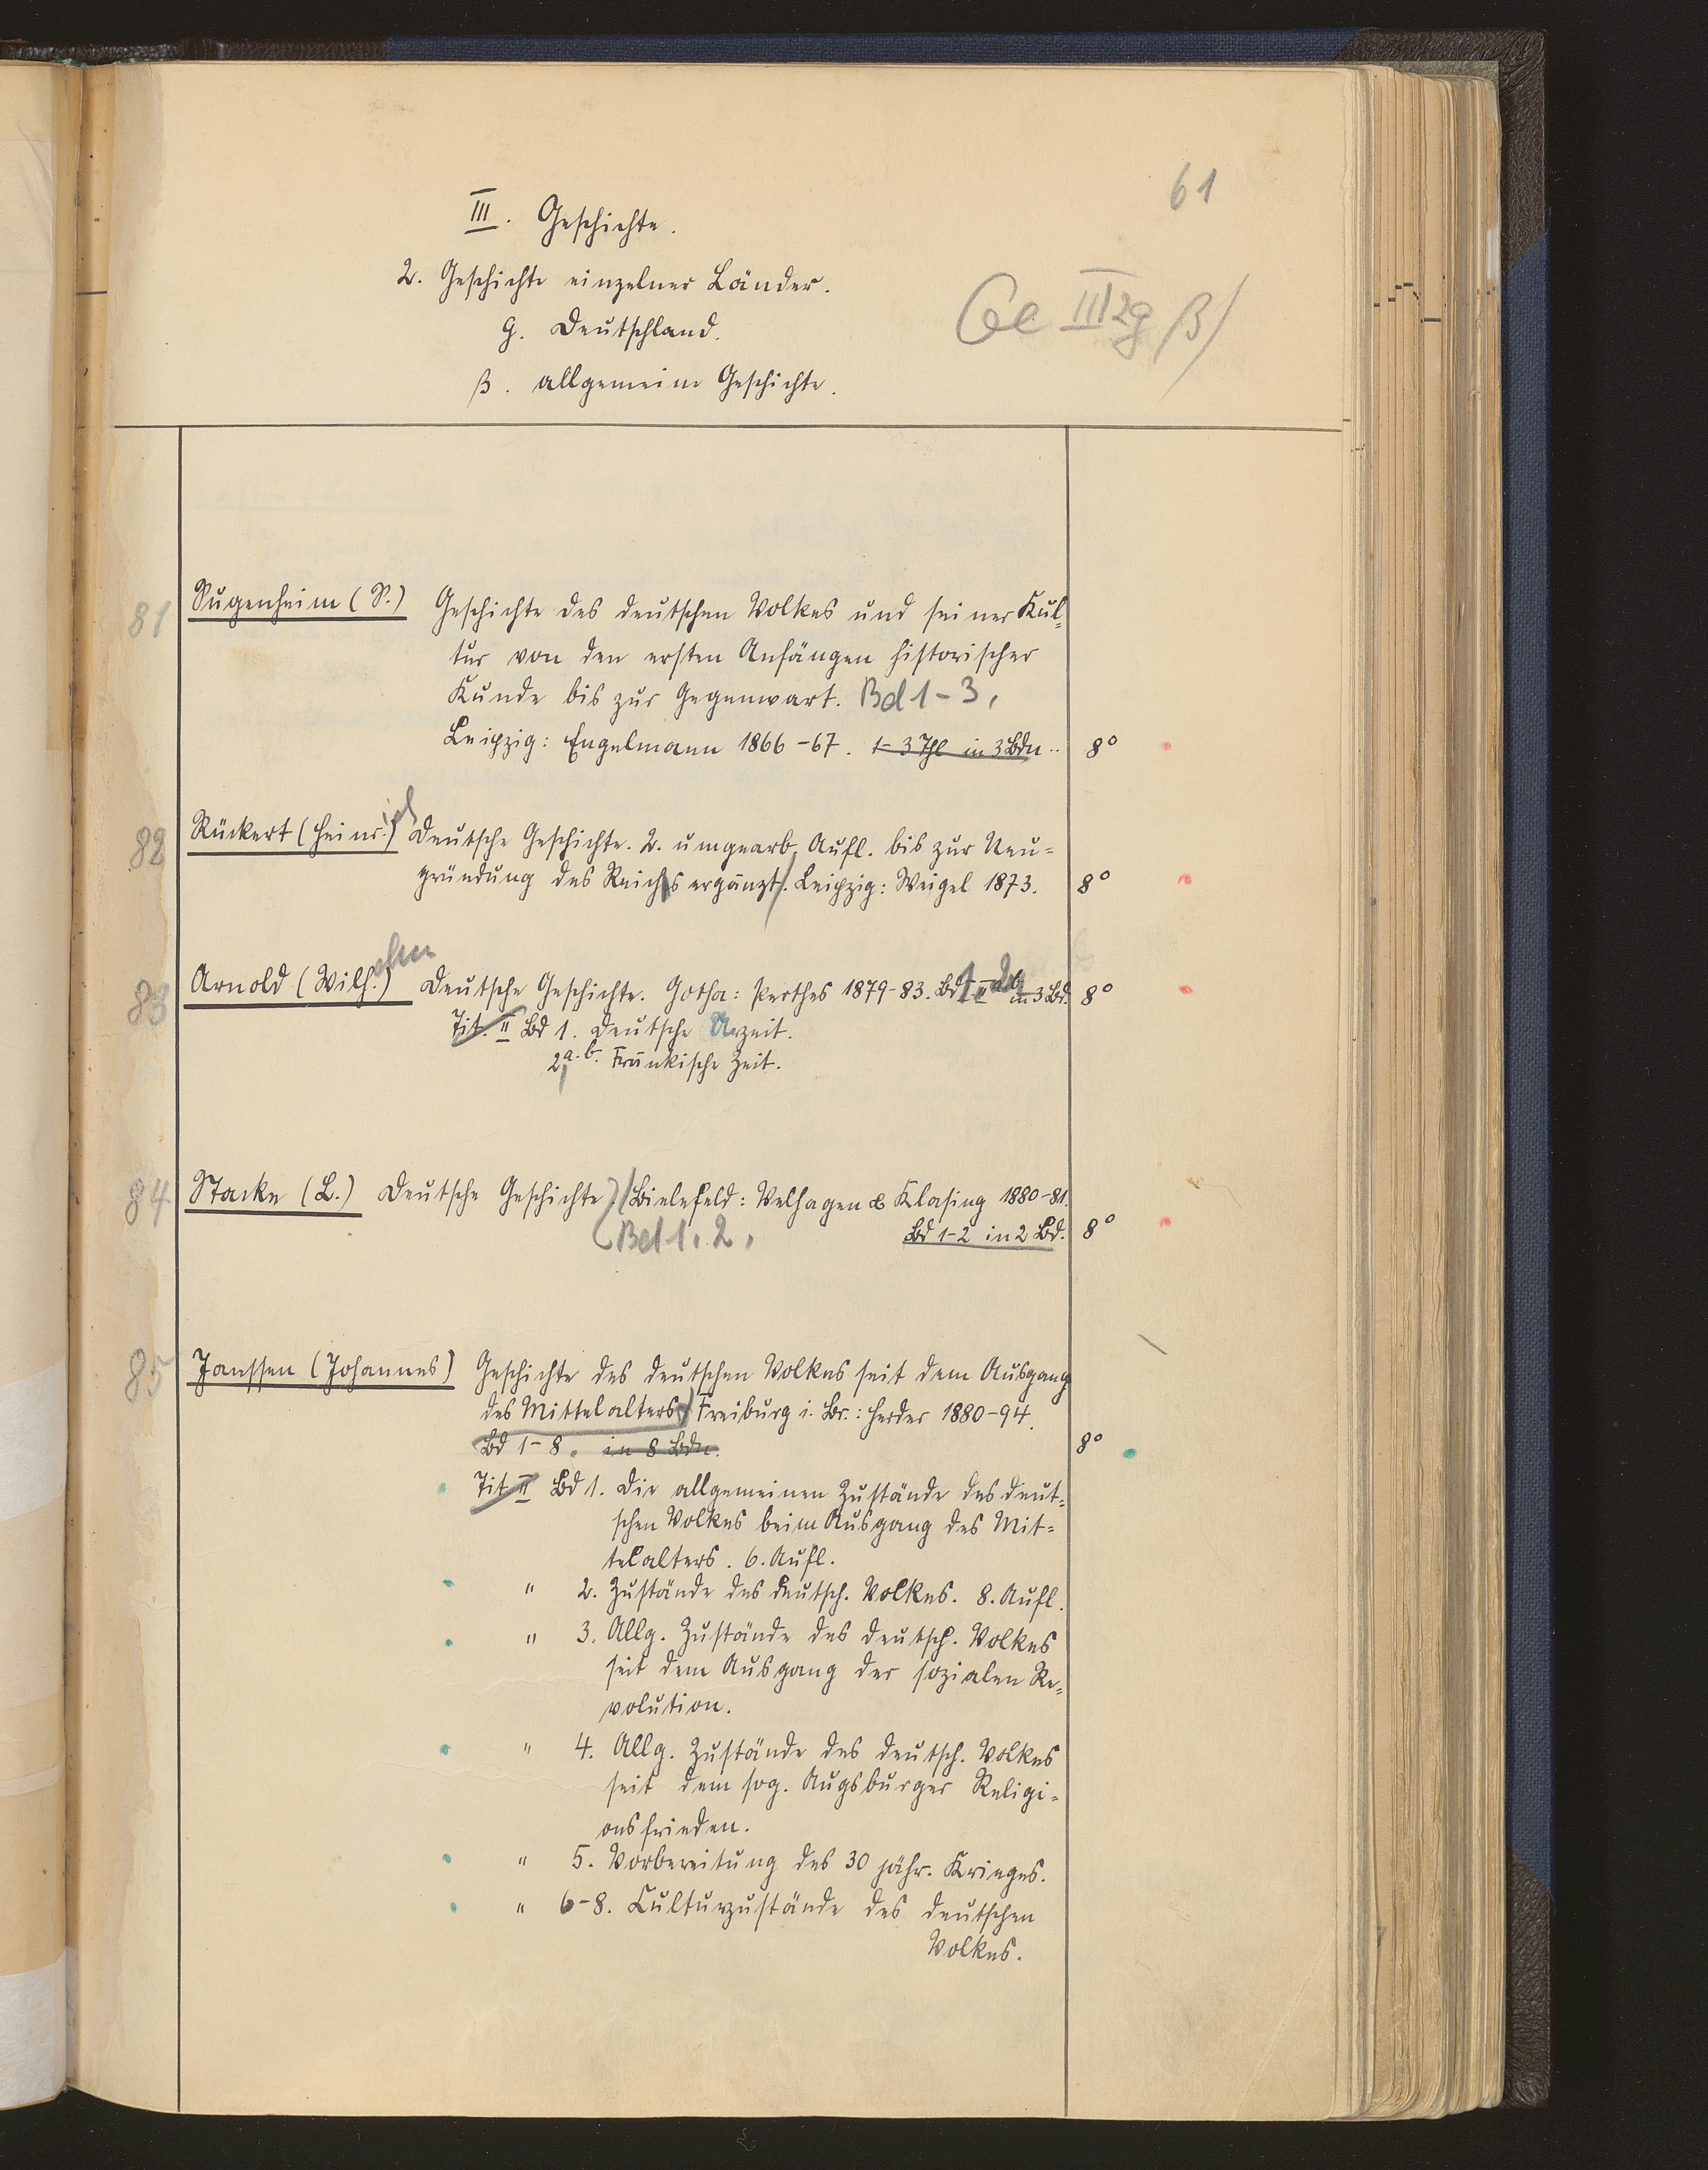 61
III. Geschichte.
2. Geschichte einzelner Länder.
Ge III 2g β)
g. Deutschland.
β. allgemeine Geschichte.
81 Sugenheim (S.) Geschichte des deutschen Volkes und seiner Kul=
tur von den ersten Anfängen historischer
Kunde bis zur Gegenwart. Bd 1-3,
Leipzig: Engelmann 1866-67. 1-3 Thl in 3 Bdn. 8°
82 Rückert (Heinr.ich) Deutsche Geschichte. 2. umgearb. Aufl. bis zur Neu=
gründung des Reichs ergänzt. Leipzig: Weigel 1873. 8°
83 Arnold (Wilh.elm) Deutsche Geschichte. Gotha: Perthes 1879-83. Bd 1-2b in 3 Bd. 8°
Tit. II Bd 1. Deutsche Urzeit.
2 a.b. Fränkische Zeit.
84 Stacke (L.) Deutsche Geschichte. Bielefeld: Velhagen & Klasing 1880-81.
Bd 1. 2, Bd 1-2 in 2 Bd. 8°
85 Janssen (Johannes) Geschichte des deutschen Volkes seit dem Ausgang
des Mittelalters. Freiburg i. Br.: Herder 1880-94.
Bd 1-8. in 8 Bdn. 8°
Tit II Bd 1. Die allgemeinen Zustände des deut=
schen Volkes beim Ausgang des Mit=
telalters. 6. Aufl.
" 2. Zustände des deutsch. Volkes. 8. Aufl.
" 3. Allg. Zustände des deutsch. Volkes
seit dem Ausgang der sozialen Re=
volution.
" 4. Allg. Zustände des deutsch. Volkes
seit dem sog. Augsburger Religi=
onsfrieden.
" 5. Vorbereitung des 30 jähr. Krieges.
" 6-8. Culturzustände des deutschen
Volkes.